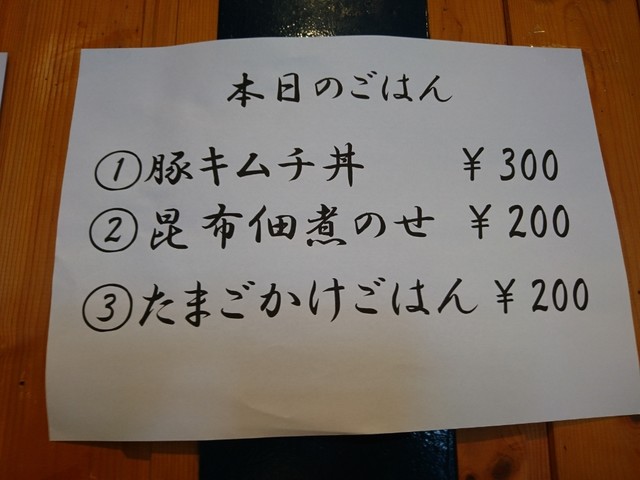 本日のごはん
①豚キムチ丼 ¥300
②昆布佃煮のせ ¥200
③たまごかけごはん ¥200